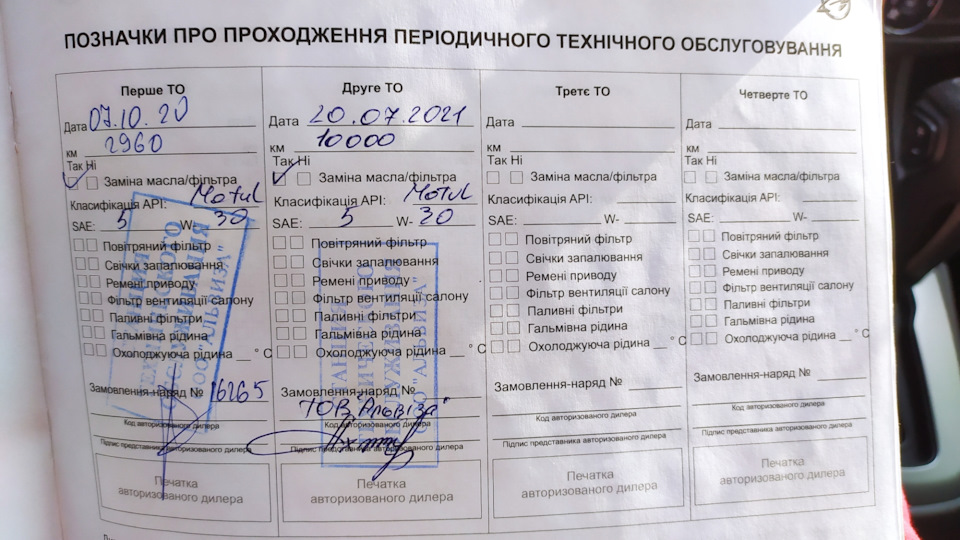 ПОЗНАЧКИ ПРО ПРОХОДЖЕННЯ ПЕРІОДИЧНОГО ТЕХНІЧНОГО ОБСЛУГОВУВАННЯ
Перше ТО
Дата 07.10.20
км 2960
Так Ні
Заміна масла/фільтра
Класифікація API: Motul
SAE: 5 W- 30
Повітряний фільтр
Свічки запалювання
Ремені приводу
Фільтр вентиляції салону
Паливні фільтри
Гальмівна рідина
Охолоджуюча рідина __ ° С
ООО "АЛЬВИЗА"
Замовлення-наряд № 16265
Код авторизованого дилера
Підпис представника авторизованого дилера
Печатка
авторизованого дилера
Друге ТО
Дата 20.07.2021
км 10000
Так Ні
Заміна масла/фільтра
Класифікація API: Motul
SAE: 5 W- 30
Повітряний фільтр
Свічки запалювання
Ремені приводу
Фільтр вентиляції салону
Паливні фільтри
Гальмівна рідина
Охолоджуюча рідина __ ° С
"АЛЬВИЗА"
Замовлення-наряд №
ТОВ "Альвіза"
Код авторизованого дилера
Підпис представника авторизованого дилера
Печатка
авторизованого дилера
Третє ТО
Дата
км
Так Ні
Заміна масла/фільтра
Класифікація API:
SAE: W-
Повітряний фільтр
Свічки запалювання
Ремені приводу
Фільтр вентиляції салону
Паливні фільтри
Гальмівна рідина
Охолоджуюча рідина __ ° С
Замовлення-наряд №
Код авторизованого дилера
Підпис представника авторизованого дилера
Печатка
авторизованого дилера
Четверте ТО
Дата
км
Так Ні
Заміна масла/фільтра
Класифікація API:
SAE: W-
Повітряний фільтр
Свічки запалювання
Ремені приводу
Фільтр вентиляції салону
Паливні фільтри
Гальмівна рідина
Охолоджуюча рідина __ ° С
Замовлення-наряд №
Код авторизованого дилера
Підпис представника авторизованого дилера
Печатка
авторизованого дилера